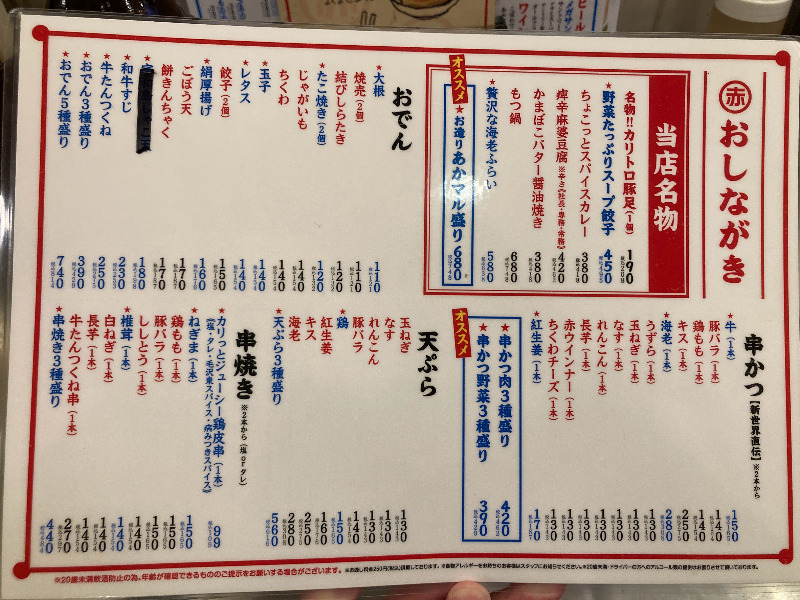 ㊥赤 おしながき
当店名物
名物!!カリトロ豚足(1個) 190
★野菜たっぷりスープ餃子 450
ちょこっとスパイスカレー 380
痺辛麻婆豆腐 ※辛さ【社長・専務・常務】 420
かまぼこバター醤油焼き 380
もつ鍋 680
★贅沢な海老ふらい 580
オススメ
★お造りあかマル盛り 680
おでん
★大根 110
焼売(2個) 110
結びしらたき 120
★たこ焼き(2個) 120
じゃがいも 140
ちくわ 140
★玉子 140
★レタス 140
餃子(2個) 150
★絹厚揚げ 160
ごぼう天 170
餅きんちゃく 170
★ 180
★和牛すじ 230
★牛たんつくね 250
★おでん3種盛り 390
★おでん5種盛り 740
串かつ【新世界直伝】※2本から
★牛(1本) 150
豚バラ(1本) 140
鶏もも(1本) 140
キス(1本) 250
★海老(1本) 280
うずら(1本) 150
玉ねぎ(1本) 130
なす(1本) 130
れんこん(1本) 130
長芋(1本) 130
赤ウインナー(1本) 130
ちくわチーズ(1本) 130
★紅生姜(1本) 170
オススメ
★串かつ肉3種盛り 420
★串かつ野菜3種盛り 390
天ぷら
玉ねぎ 130
なす 130
れんこん 130
豚バラ 140
★鶏 150
紅生姜 160
キス 250
海老 280
★天ぷら3種盛り 560
串焼き ※2本から(塩orタレ)
★カリっとジューシー鶏皮串(1本) 99
(塩・タレ・毛沢東スパイス・病みつきスパイス)
★ねぎま(1本) 150
鶏もも(1本) 150
豚バラ(1本) 150
ししとう(1本) 140
★椎茸(1本) 140
白ねぎ(1本) 140
長芋(1本) 140
★牛たんつくね串(1本) 270
★串焼き3種盛り 440
※20歳未満飲酒防止の為、年齢が確認できるもののご提示をお願いする場合がございます。